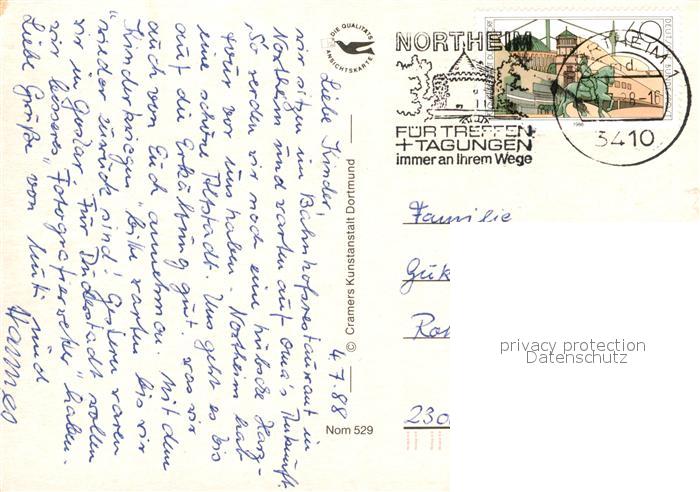 4.7.88
Liebe Kinder,
wir sitzen im Bahnhofsrestaurant in
Northeim und warten auf Oma's Ankunft.
So werden wir noch eine hübsche Harz-
tour vor uns haben. Northeim hat
eine schöne Altstadt. Uns geht es bis
auf die Erkältung gut, was wir
auch von Euch annehmen. Mit dem
Kinderkriegen bitte warten bis wir
wieder zurück sind! Gestern waren
wir in Goslar. Für Duderstadt wollen
wir besseres "Fotografierwetter" haben.
Liebe Grüße von Mutti und
Hannes
DIE QUALITÄTS
ANSICHTSKARTE
© Cramers Kunstanstalt Dortmund
Nom 529
NORTHEIM
FÜR TREFFEN
+ TAGUNGEN
immer an Ihrem Wege
60
1988
NORTHEIM 1
d
88-16
3410
Familie
230
privacy protection
Datenschutz